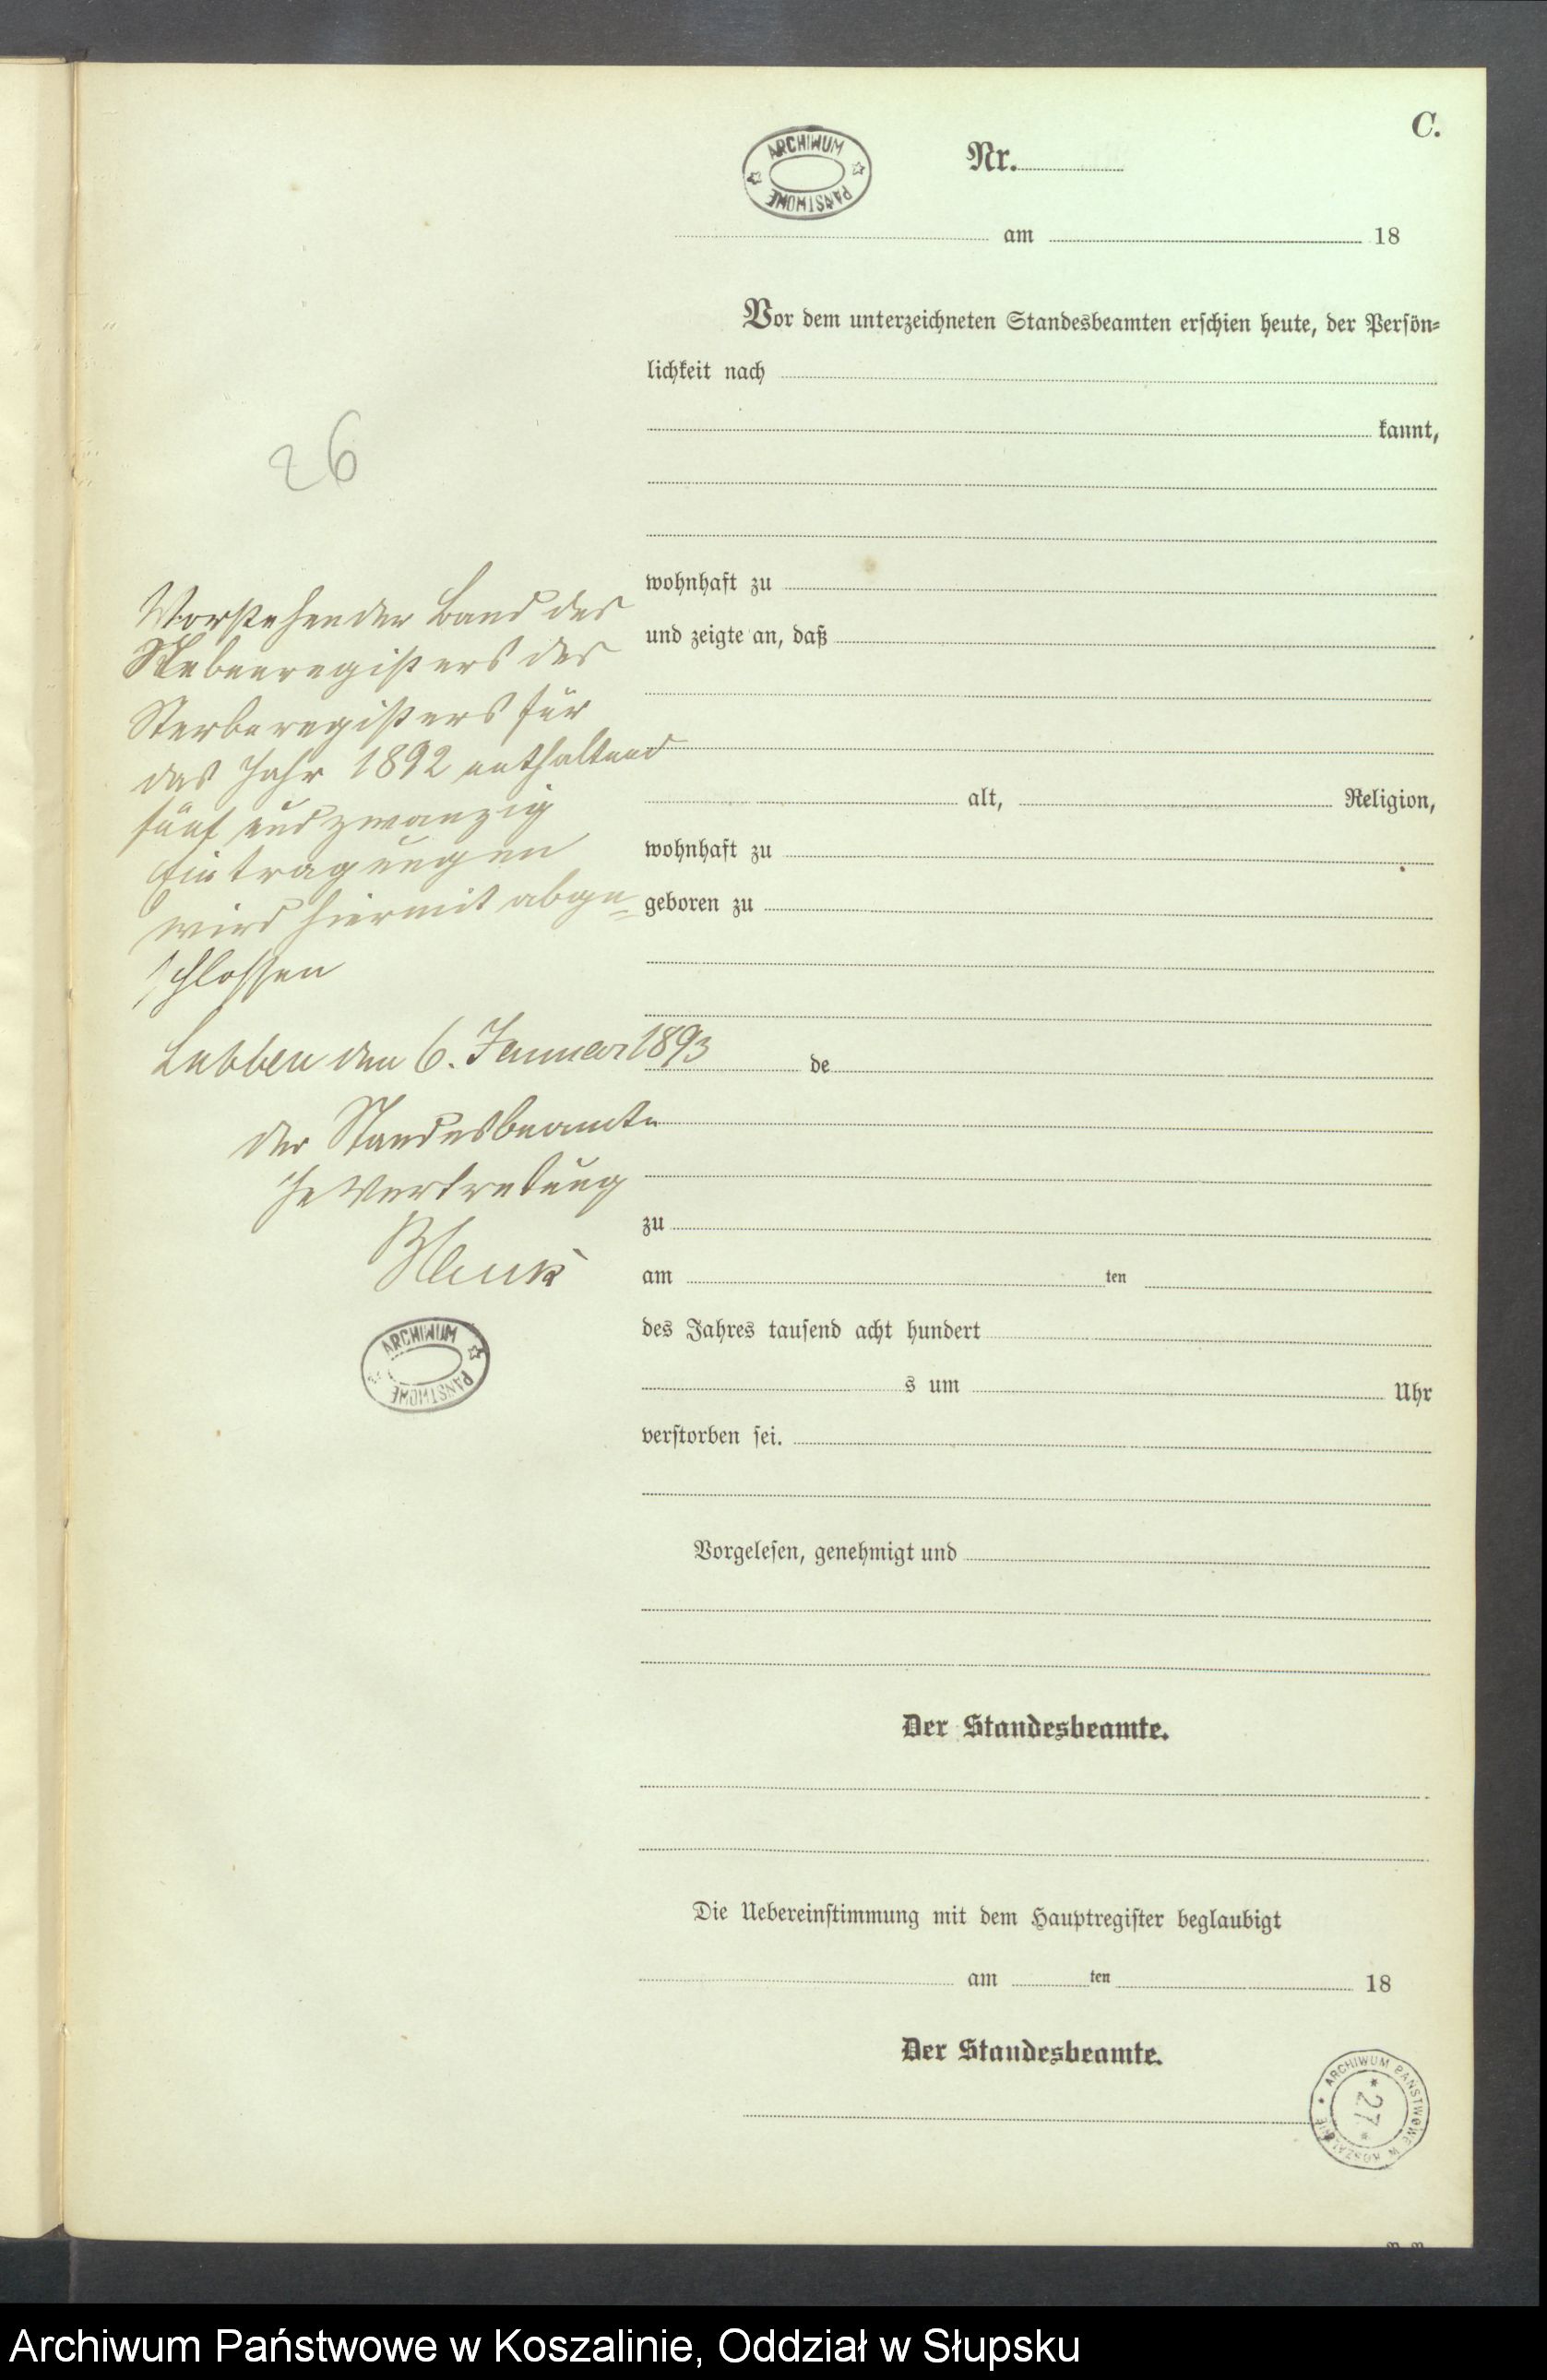 C.
ARCHIWUM PAŃSTWOWE
Nr.
am 18
Vor dem unterzeichneten Standesbeamten erschien heute, der Persön=
lichkeit nach
kannt,
26
wohnhaft zu
und zeigte an, daß
alt, Religion,
wohnhaft zu
geboren zu
de
zu
am ten
des Jahres tausend acht hundert
s um Uhr
verstorben sei.
Vorgelesen, genehmigt und
Der Standesbeamte.
Die Uebereinstimmung mit dem Hauptregister beglaubigt
am ten 18
Der Standesbeamte.
Vorstehender Band des
Nebenregisters des
Sterberegisters für
das Jahr 1892 enthaltend
fünf und zwanzig
Eintragungen
wird hiermit abge=
schlossen
den 6. Januar 1893
Der Standesbeamte
In Vertretung
ARCHIWUM PAŃSTWOWE
ARCHIWUM PAŃSTWOWE W KOSZALINIE
27
Archiwum Państwowe w Koszalinie, Oddział w Słupsku